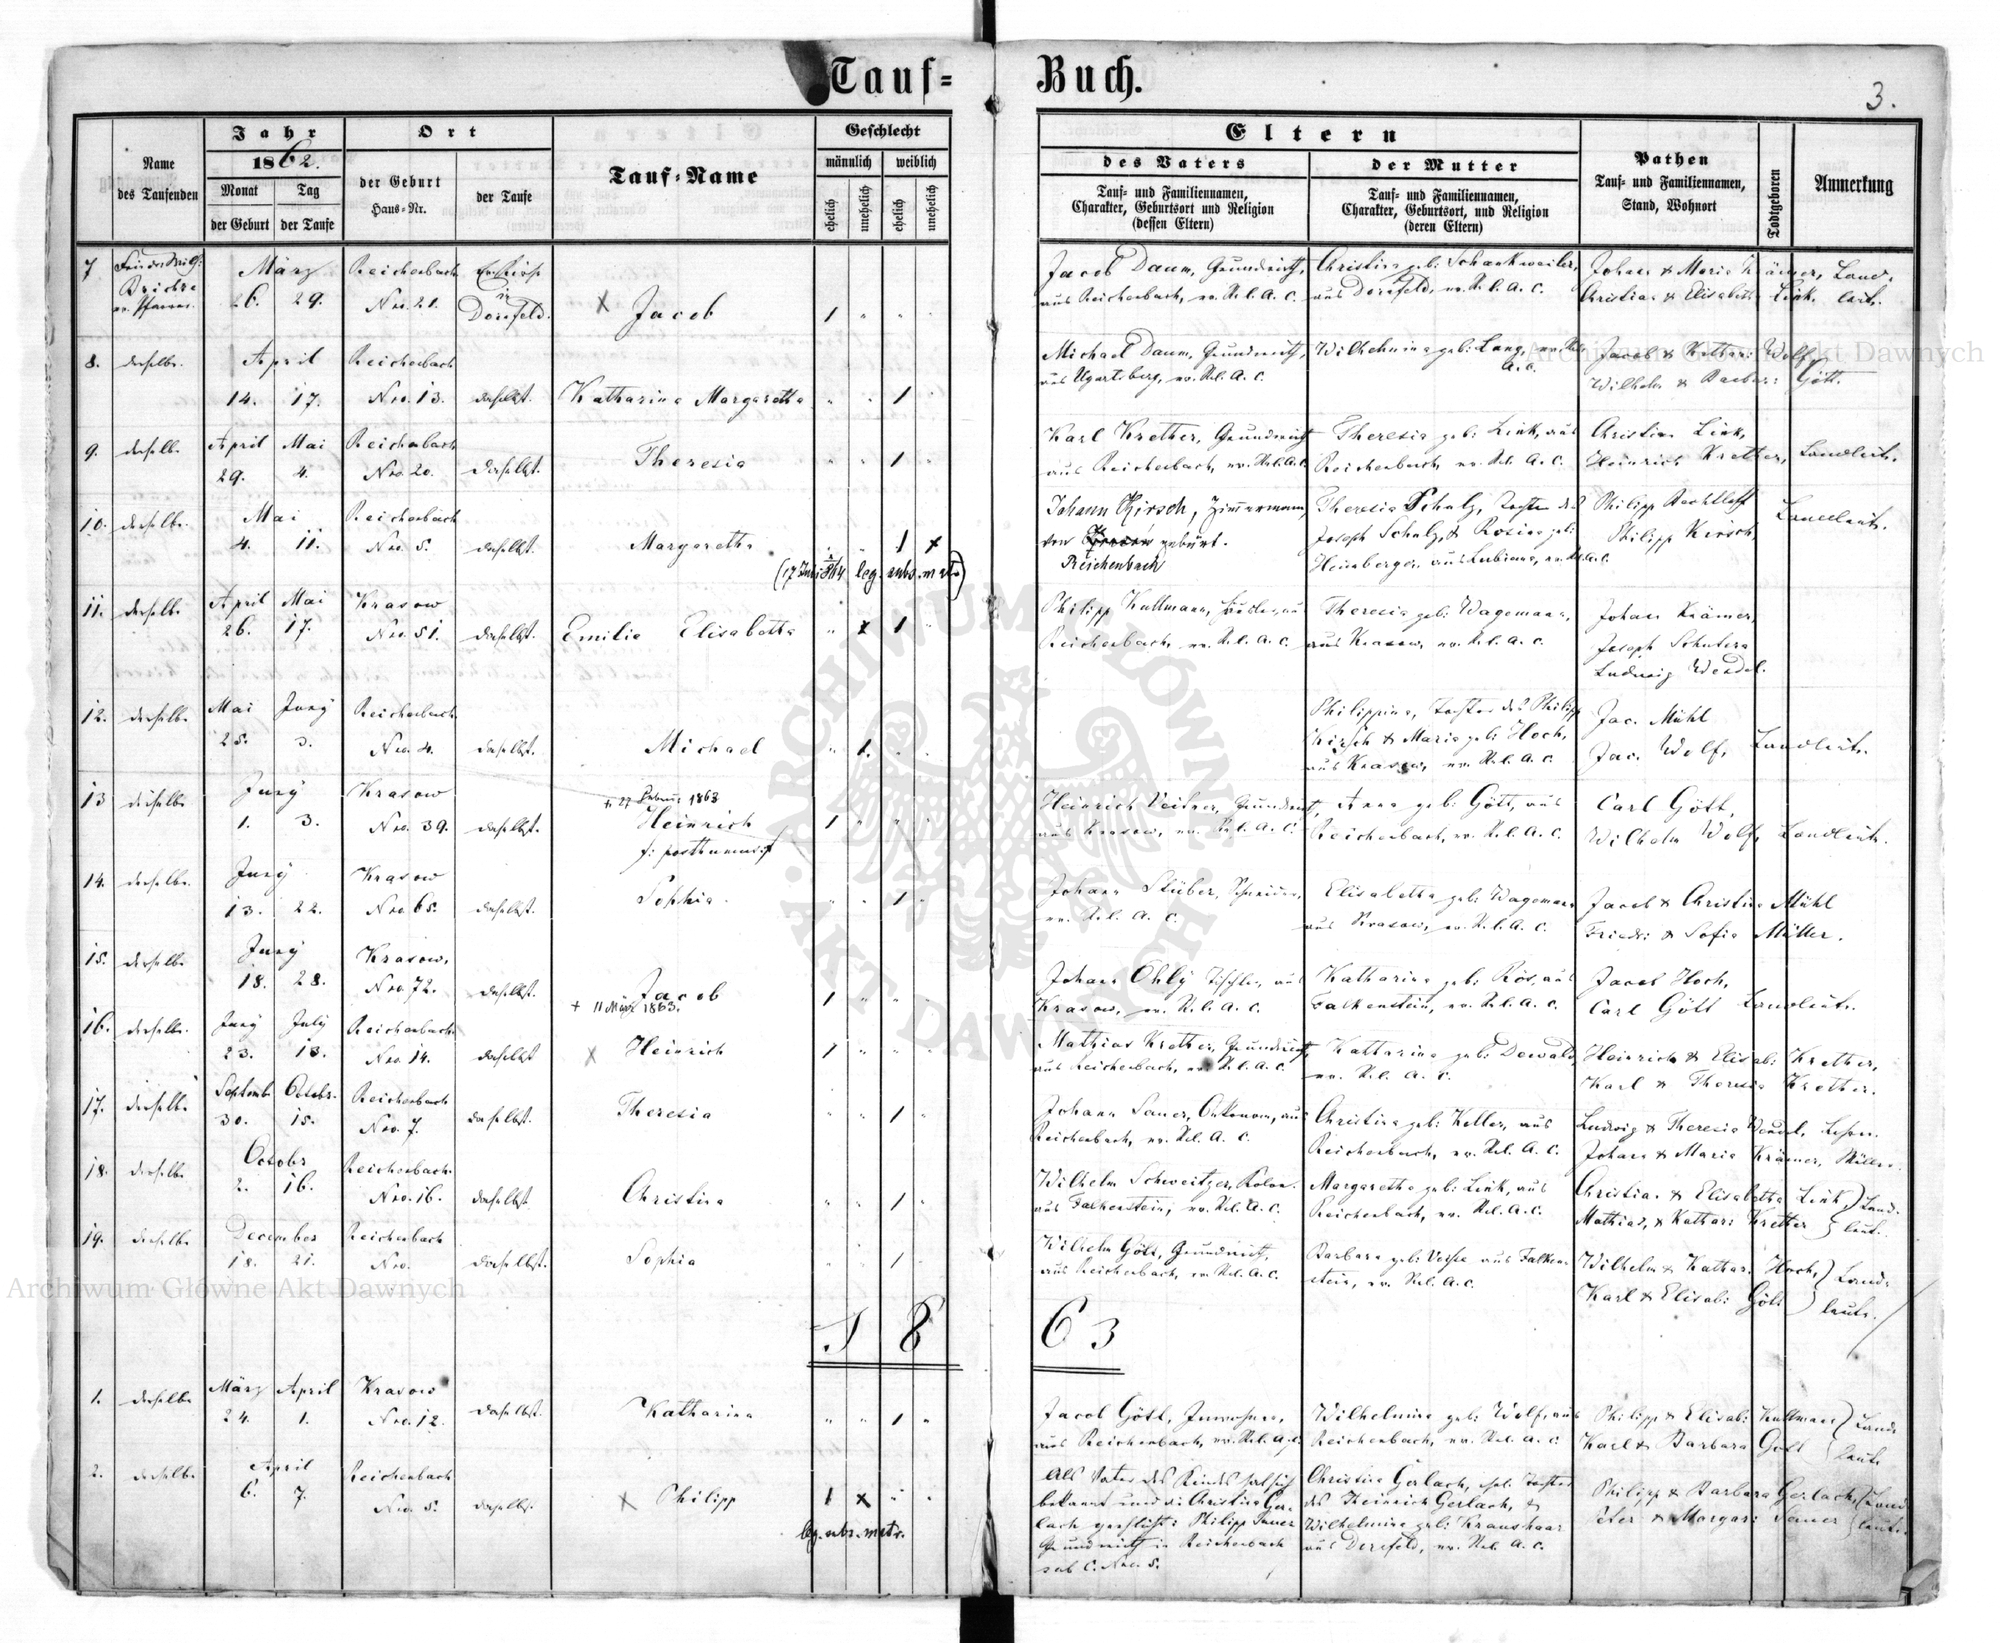 Tauf=Buch.
3.
Name des Taufenden
Jahr
1862.
Monat der Geburt
Tag der Taufe
Ort
der Geburt Haus=Nr.
der Taufe
Tauf=Name
Geschlecht
männlich
weiblich
ehelich
unehelich
ehelich
unehelich
Eltern
des Vaters
Tauf= und Familiennamen, Charakter, Geburtsort und Religion (dessen Eltern)
der Mutter
Tauf= und Familiennamen, Charakter, Geburtsort, und Religion (deren Eltern)
Pathen
Tauf= und Familiennamen, Stand, Wohnort
Todtgeboren
Anmerkung
7 März Reichenbach
26. 29. Nro. 21. in Dornfeld. X Jacob 1
Jacob Daum, Grundwirth, aus Reichenbach, ev. Rel. A. C.
Christina geb: Schankweiler, aus Dornfeld, ev. Rel. A. C.
Johann & Maria Krämer, Christian & Elisabeth Link, Landleute.
8. derselbe. April Reichenbach
14. 17. Nro. 13. daselbst. Katharina Margaretha 1
Michael Daum, Grundwirth, aus Ugartsberg, ev. Rel. A. C.
Wilhelmina geb: Lang, ev. Rel. A. C.
Jacob & Kathar: Wolf
Wilhelm & Barbar: Gött.
9. derselbe April Mai Reichenbach
29. 4. Nro. 20. daselbst. Theresia 1
Karl Krether, Grundwirth aus Reichenbach, ev. Rel. A. C.
Theresia geb: Link, aus Reichenbach, ev. Rel. A. C.
Christian Link,
Heinrich Krether, Landleute.
10. derselbe. Mai Reichenbach
4. 11. Nro. 5. daselbst. Margaretha 1 x
leg. subs. matr.)
Johann Kirsch, Zimmermann, von gebürt. Reichenbach
Theresia Schulz, Tochter des Joseph Schulz, & Rosina geb: Heimberger
Philipp
Philipp Kirsch, Landleute.
11. derselbe April Mai Krasow
26. 17. Nro. 51. daselbst. Emilia Elisabetha x 1
Philipp Kullmann, aus Reichenbach, ev. Rel. A. C.
Theresia geb: Wagemann, aus Krasow, ev. Rel. A. C.
Johann Krämer,
Joseph
Ludwig Wendel.
12. derselbe Mai Juny Reichenbach
25. 3. Nro. 4. daselbst. Michael 1.
Philippina, Tochter des Philipp Kirsch & Maria geb: Hoch, aus Krasow, ev. Rel. A. C.
Jac. Mühl
Jac. Wolf, Landleute.
13 derselbe Juny Krasow
1863
1. 3. Nro. 39. daselbst. Heinrich 1
posthumus
Heinrich Grundwirth, aus Krasow, ev. Rel. A. C.
Anna geb: Gött, aus Reichenbach, ev. Rel. A. C.
Carl Gött,
Wilhelm Wolf, Landleute.
14. derselbe. Juny Krasow
13. 22. Nro. 65. daselbst. Sophia. 1
Johann Stüber, ev. Rel. A. C.
Elisabetha geb: Wagemann aus Krasow, ev. Rel. A. C.
Jacob & Christina Mühl
Friedr: & Sofia Müller.
15. derselbe Juny Krasow,
18. 28. Nro. 72. daselbst. Jacob 1
+ 11 März 1863.
Johann Ohly Tischler, aus Krasow, ev. Rel. A. C.
Katharina geb: Rös, aus Falkenstein, ev. Rel. A. C.
Jacob Hoch,
Carl Gött Landleute.
16. derselbe. Juny July Reichenbach
23. 13. Nro. 14. daselbst X Heinrich 1
Mathias Krether, Grundwirth, aus Reichenbach, ev. Rel. A. C.
Katharina geb: Dewald, ev. Rel. A. C.
Heinrich & Elisab: Krether,
Karl & Theresia Krether.
17. derselbe Septemb. Octobr. Reichenbach
30. 15. Nro. 7. daselbst. Theresia 1
Johann Sauer, Oekonom, aus Reichenbach, ev. Rel. A. C.
Christina geb: Keller, aus Reichenbach, ev. Rel. A. C.
Ludwig & Theresia Wendel, Lehrer.
Johann & Maria Krämer, Müller.
18. derselbe Octobr Reichenbach
2. 16. Nro. 16. daselbst. Christina 1
Wilhelm Schweitzer, Kolon. aus Falkenstein, ev. Rel. A. C.
Margaretha geb: Link, aus Reichenbach, ev. Rel. A. C.
Christian & Elisabetha Link,
Mathias, & Kathar: Krether } Landleute.
19. derselbe December Reichenbach
18. 21. Nro. daselbst. Sophia 1
Wilhelm Gött, Grundwirth, aus Reichenbach, ev. Rel. A. C.
Barbara geb: aus Falkenstein, ev. Rel. A. C.
Wilhelm & Kathar: Hoch,
Karl & Elisab: Gött } Landleute.
8 63
1. derselbe März April Krasow
24. 1. Nro. 12. daselbst. Katharina 1
Jacob Gött, Inwohner, aus Reichenbach, ev. Rel. A. C.
Wilhelmina geb: Wolf, aus Reichenbach, ev. Rel. A. C.
Philipp & Elisab: Kullmann
Karl & Barbara Gött } Landleute
2. derselbe April Reichenbach
6. 7. Nro. 5. daselbst. X Philipp 1 x
leg. subs. matr.
Als Vater des Kindes hat sich bekannt und die Christina Gerlach geehlicht: Philipp Sauer Grundwirth in Reichenbach sub C. Nro. 5.
Christina Gerlach, Tochter des Heinrich Gerlach, & Wilhelmina geb: Kraushaar aus Dornfeld, ev. Rel. A. C.
Philipp & Barbara Gerlach,
Peter & Margar: Sauer } Landleute.
ARCHIWUM GŁÓWNE AKT DAWNYCH
Archiwum Główne Akt Dawnych
Archiwum Główne Akt Dawnych